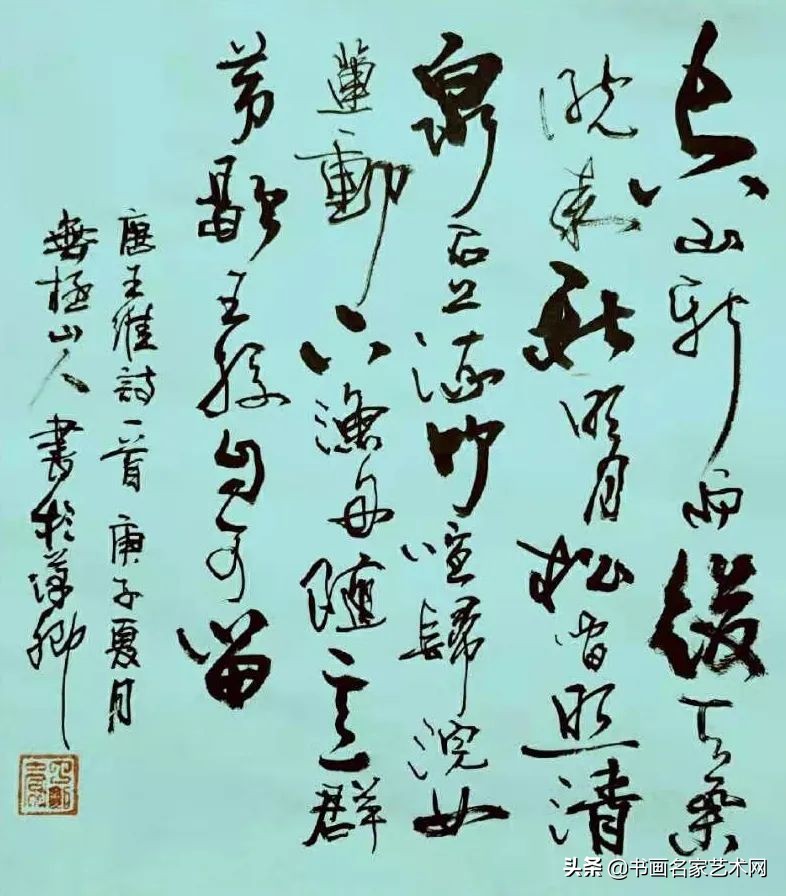 空山新雨後天氣
晚來秋明月松間照清
泉石上流竹喧歸浣女
蓮動下漁舟隨意群
芳歇王孫自可留
唐王維詩一首 庚子夏月
無極山人 書於
头条 @书画名家艺术网